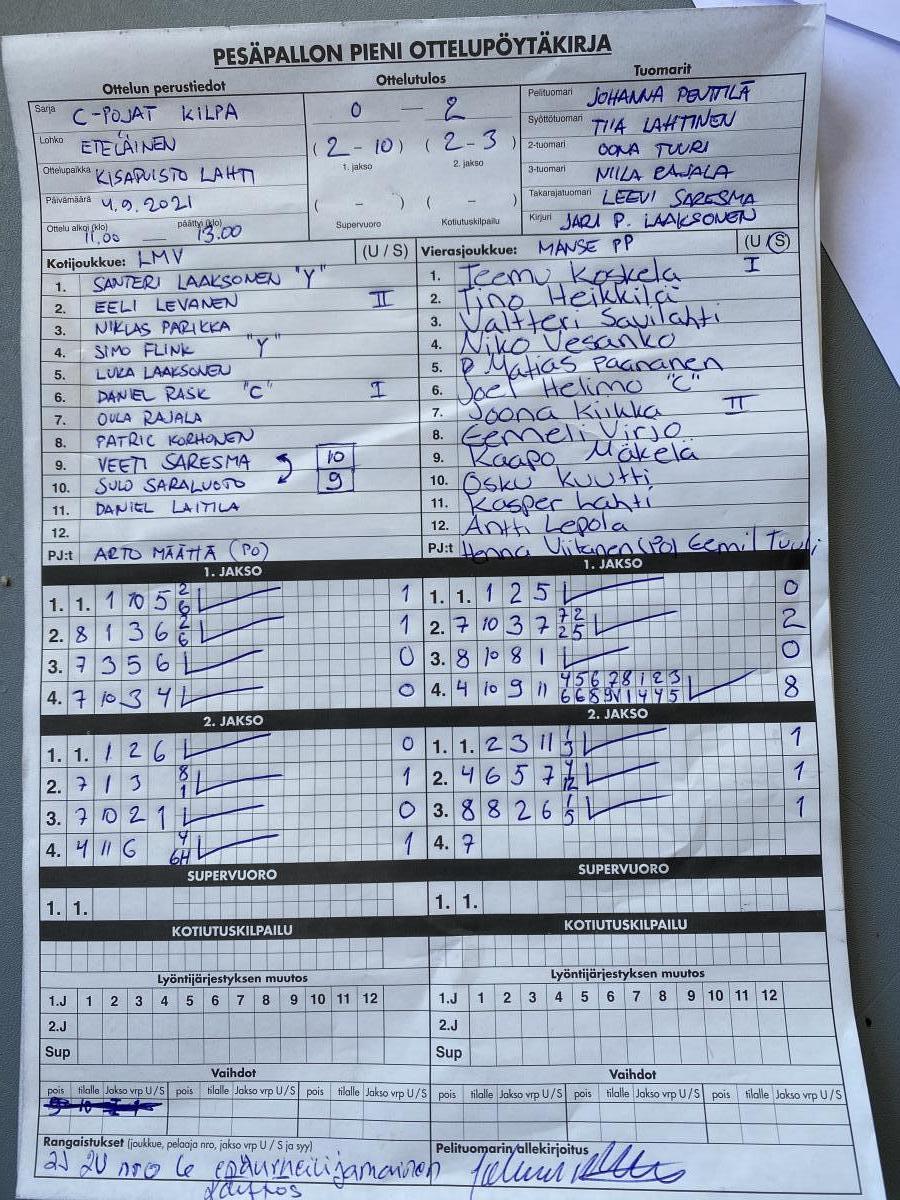 PESÄPALLON PIENI OTTELUPÖYTÄKIRJA
Ottelun perustiedot
Sarja C-POJAT KILPA
Lohko ETELÄINEN
Ottelupaikka KISAPUISTO LAHTI
Päivämäärä 4.9.2021
Ottelu alkoi (klo) 11.00 — päättyi (klo) 13.00
Ottelutulos
0 — 2
(2 - 10) (2 - 3)
1. jakso 2. jakso
( - ) ( - )
Supervuoro Kotiutuskilpailu
Tuomarit
Pelituomari JOHANNA PENTTILÄ
Syöttötuomari TIIA LAHTINEN
2-tuomari OONA TUURI
3-tuomari NIILA RAJALA
Takarajatuomari LEEVI SARESMA
Kirjuri JARI P. LAAKSONEN
Kotijoukkue: LMV (U / S)
1. SANTERI LAAKSONEN "Y"
2. EELI LEVANEN II
3. NIKLAS PARIKKA
4. SIMO FLINK "Y"
5. LUKA LAAKSONEN
6. DANIEL RASK "C" I
7. OULA RAJALA
8. PATRIC KORHONEN
9. VEETI SARESMA 10
10. SULO SARALUOTO 9
11. DANIEL LAITILA
12.
PJ:t ARTO MÄÄTTÄ (PO)
Vierasjoukkue: MANSE PP (U / S)
1. Teemu Koskela I
2. Tino Heikkilä
3. Valtteri Savilahti
4. Niko Vesanko
5. Matias Paananen
6. Joel Helimo "C"
7. Joona Kiikka II
8. Eemeli Virjo
9. Kaapo Mäkelä
10. Osku Kuutti
11. Kasper Lahti
12. Antti Lepola
PJ:t Henna Viitanen (PO) Eemil Tuuli
1. JAKSO
1. 1. 1 10 5 2 6 1
2. 8 1 3 6 2 6 1
3. 7 3 5 6 0
4. 7 10 3 4 0
2. JAKSO
1. 1. 1 2 6 0
2. 7 1 3 8 1 1
3. 7 10 2 1 0
4. 4 11 6 4 6H 1
SUPERVUORO
1. 1.
KOTIUTUSKILPAILU
Lyöntijärjestyksen muutos
1.J 1 2 3 4 5 6 7 8 9 10 11 12
2.J
Sup
Vaihdot
pois tilalle Jakso vrp U / S pois tilalle Jakso vrp U / S pois tilalle Jakso vrp U / S
1. JAKSO
1. 1. 1 2 5 0
2. 7 10 3 7 7 2 2 5 2
3. 8 10 8 1 0
4. 4 10 9 11 4 5 6 7 8 1 2 3 6 6 8 9 11 1 4 4 5 8
2. JAKSO
1. 1. 2 3 11 1 3 1
2. 4 6 5 7 4 12 1
3. 8 8 2 6 1 5 1
4. 7
SUPERVUORO
1. 1.
KOTIUTUSKILPAILU
Lyöntijärjestyksen muutos
1.J 1 2 3 4 5 6 7 8 9 10 11 12
2.J
Sup
Vaihdot
pois tilalle Jakso vrp U / S pois tilalle Jakso vrp U / S pois tilalle Jakso vrp U / S
Rangaistukset (joukkue, pelaaja nro, jakso vrp U / S ja syy)
2J 2U nro 6 epäurheilijamainen
käytös
Pelituomarin allekirjoitus